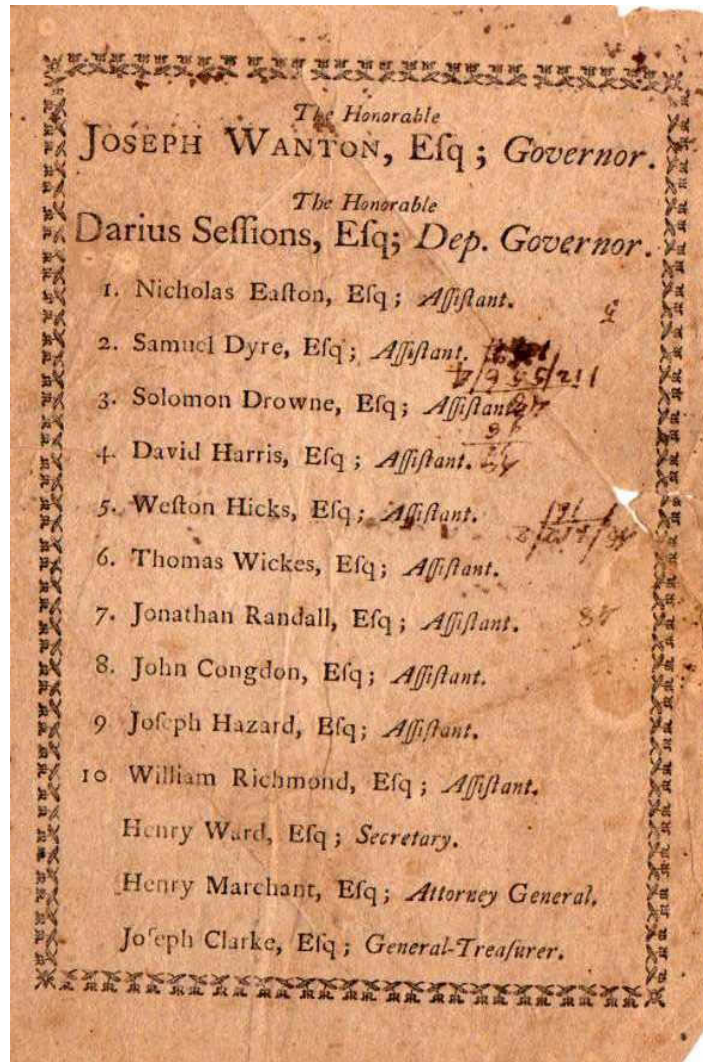 The Honorable
JOSEPH WANTON, Eſq; Governor.
The Honorable
Darius Seſſions, Eſq; Dep. Governor.
1. Nicholas Eaſton, Eſq; Aſſiſtant.
2. Samuel Dyre, Eſq; Aſſiſtant.
3. Solomon Drowne, Eſq; Aſſiſtant.
4. David Harris, Eſq; Aſſiſtant.
5. Weſton Hicks, Eſq; Aſſiſtant.
6. Thomas Wickes, Eſq; Aſſiſtant.
7. Jonathan Randall, Eſq; Aſſiſtant.
8. John Congdon, Eſq; Aſſiſtant.
9 Joſeph Hazard, Eſq; Aſſiſtant.
10 William Richmond, Eſq; Aſſiſtant.
Henry Ward, Eſq; Secretary.
Henry Marchant, Eſq; Attorney General.
Joſeph Clarke, Eſq; General-Treaſurer.